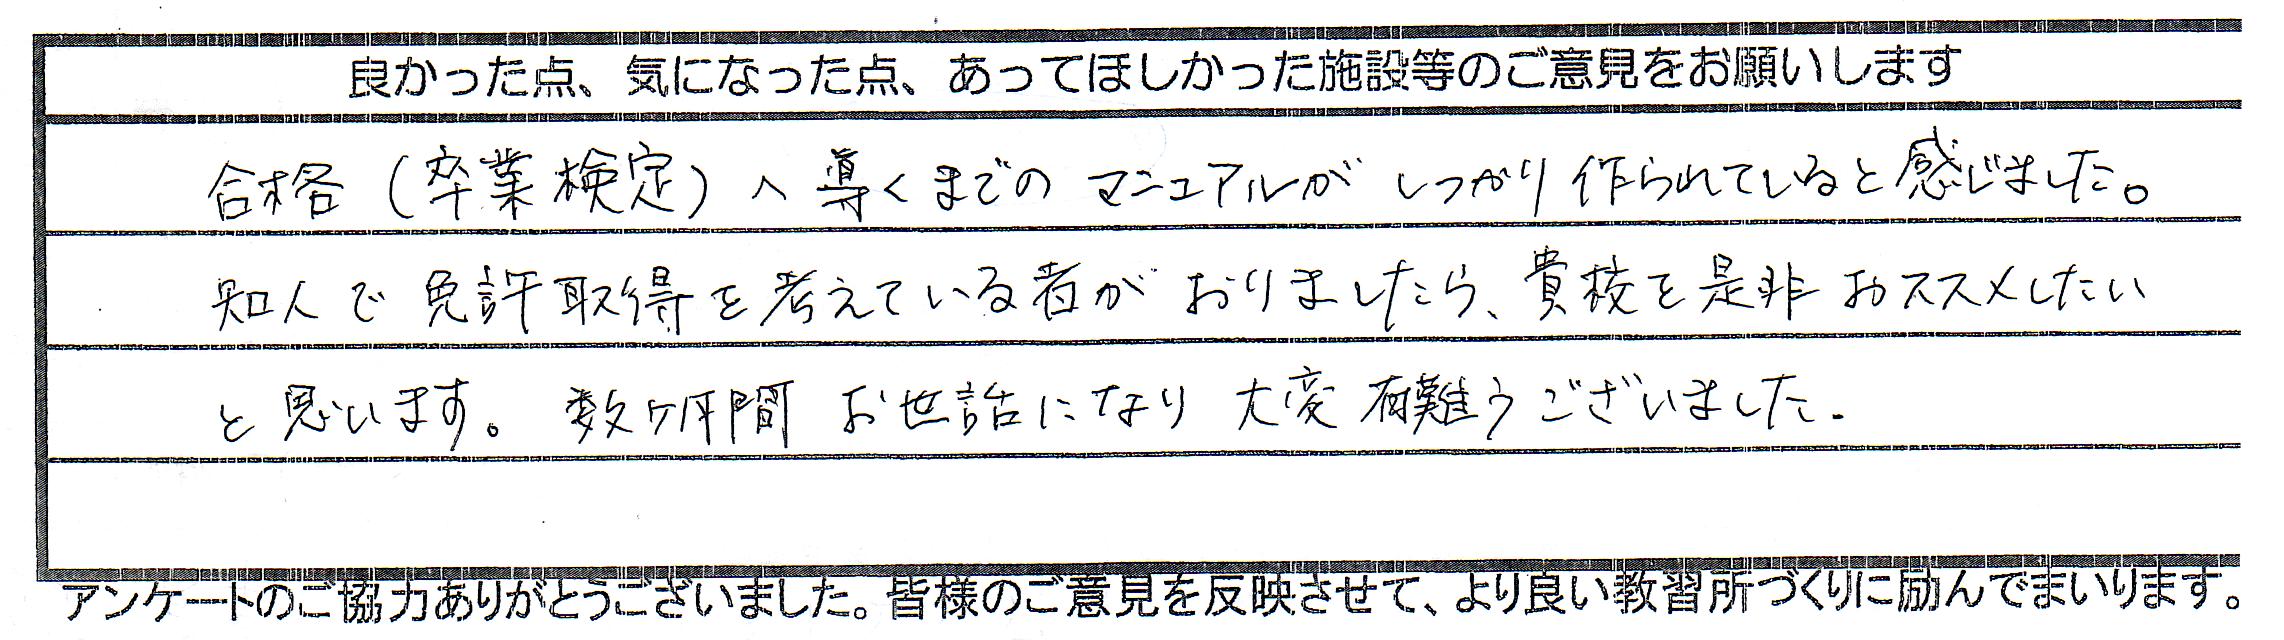 良かった点、気になった点、あってほしかった施設等のご意見をお願いします
合格(卒業検定)へ導くまでの マニュアルが しっかり作られていると感じました。
知人で免許取得を考えている者がおりましたら、貴校を是非おススメしたい
と思います。数ヶ月間 お世話になり 大変有難うございました.
アンケートのご協力ありがとうございました。皆様のご意見を反映させて、より良い教習所づくりに励んでまいります。